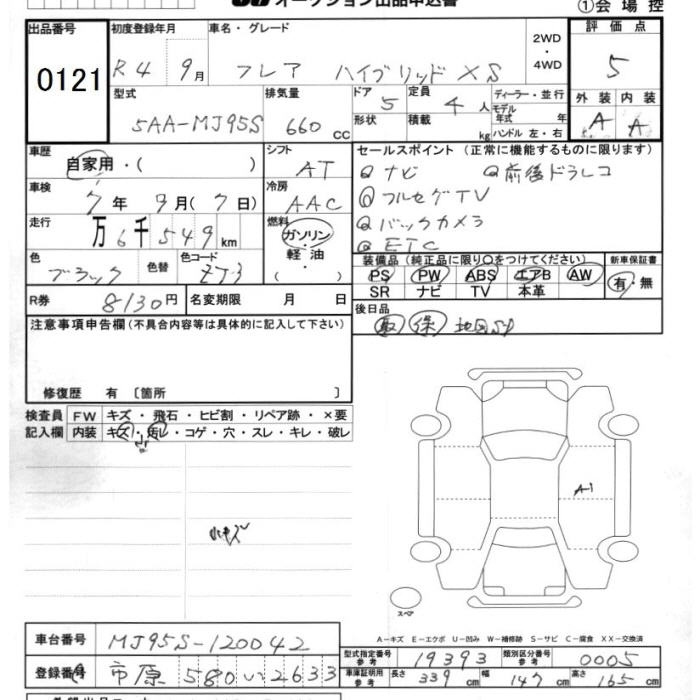 オークション出品申込書
①会場控
出品番号 初度登録年月 車名・グレード 2WD・4WD 評価点
0121 R4 9月 フレア ハイブリッドXS 5
型式 排気量 ドア 5 定員 4人 ディーラー・並行 外装 内装
5AA-MJ95S 660cc 形状 積載 kg モデル年式 年 ハンドル 左・右 A A
車歴 自家用・( ) シフト AT セールスポイント (正常に機能するものに限ります)
ナビ 前後ドラレコ
車検 7年 9月(7日) 冷房 AAC フルセグTV
走行 万6千549km 燃料 ガソリン・軽油・( ) バックカメラ
ETC
色 ブラック 色替 色コード ZJ3 装備品 (純正品に限り○をつけてください) 新車保証書
PS PW ABS エアB AW 有・無
SR ナビ TV 本革
R券 8130円 名変期限 月 日 後日品
取 保 地図SD
注意事項申告欄 (不具合内容等は具体的に記入して下さい)
修復歴 有 〔箇所 〕
検査員記入欄 FW キズ・飛石・ヒビ割・リペア跡・×要
内装 キズ・汚レ・コゲ・穴・スレ・キレ・破レ
小
小キズ
A1
スペア
A-キズ E-エクボ U-凹み W-補修跡 S-サビ C-腐食 XX-交換済
車台番号 MJ95S-120042
型式指定番号 参考 19393 類別区分番号 参考 0005
登録番号 市原 580 い 2633
車庫証明用 参考 長さ 339cm 幅 147cm 高さ 165cm